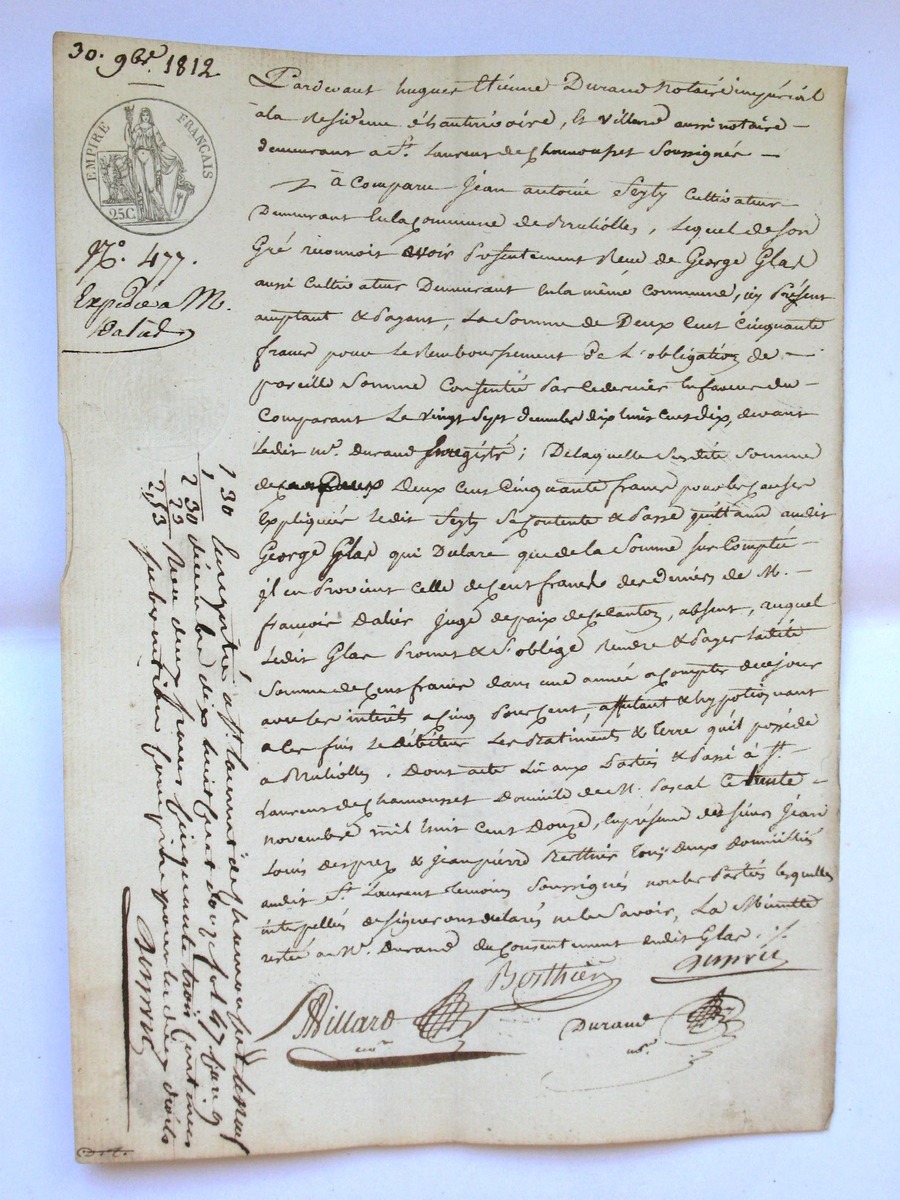 30. 9bre. 1812
EMPIRE FRANÇAIS
25C.
N.° 477.
Expédié à M.
Dalud
Pardevant hugues Etienne Durand Notaire impérial
à la Residence d'hauterivoire, Et Villard aussi notaire
demeurant a St. Laurent de Chamousset Soussignés
à Comparu Jean antoine Seyty Cultivateur
Demeurant En la Commune de Brulliolles, lequel de son
Gré reconnoit avoir Présentement Reçu de George Glas
aussi Cultivateur Demeurant En la même Commune, icy Présent
acceptant & Payant, La Somme de Deux Cent Cinquante
francs pour le Remboursement de L'obligation de
pareille Somme Consentie Par ce dernier En faveur du
Comparant Le vingt Sept décembre dix huit cent dix, devant
Ledit Me. Durand Enregistré; De laquelle Susdite Somme
de Deux Cent Cinquante francs pour les Causes
Expliquées ledit Seyty Se Contente & Passe quittance audit
George Glas qui Déclare que de la Somme sus Comptée
il En Provient Celle de Cent francs des Deniers de M.
françois Dalier Juge de paix de ce Canton, absent, auquel
Ledit Glas Promet & S'oblige Rendre & Payer ladite
Somme de Cent francs dans une année à Compter de ce jour
avec les intérêts a Cinq Pour Cent, affectant & hypotéquant
a Ces fins le débiteur Les Batiments & Terre qu'il possède
a Brulliolles. Dont acte Lu aux Parties & Passé à St.
Laurent de Chamousset Domicile de M. Pascal Ce trente
novembre mil huit Cent Douze, En présence des sieurs Jean
Louis Desprez & Jean pierre Berthier Tous Deux Domiciliés
audit St. Laurent Temoins Soussignés non les Parties lesquelles
interpellés de signer ont déclarés ne le Savoir, La Minutte
restée a Me. Durand du Consentement dudit Glas.
Berthier
Desprez
Villard
not.
Durand
not.
1 30 Enregistré à St. Laurent de Chamousset le neuf
1 décembre dix huit cent douze fol. 47
2 30 Reçu deux francs cinquante trois centimes
23 subvention comprise pour les deux droits
2,53
Desprez